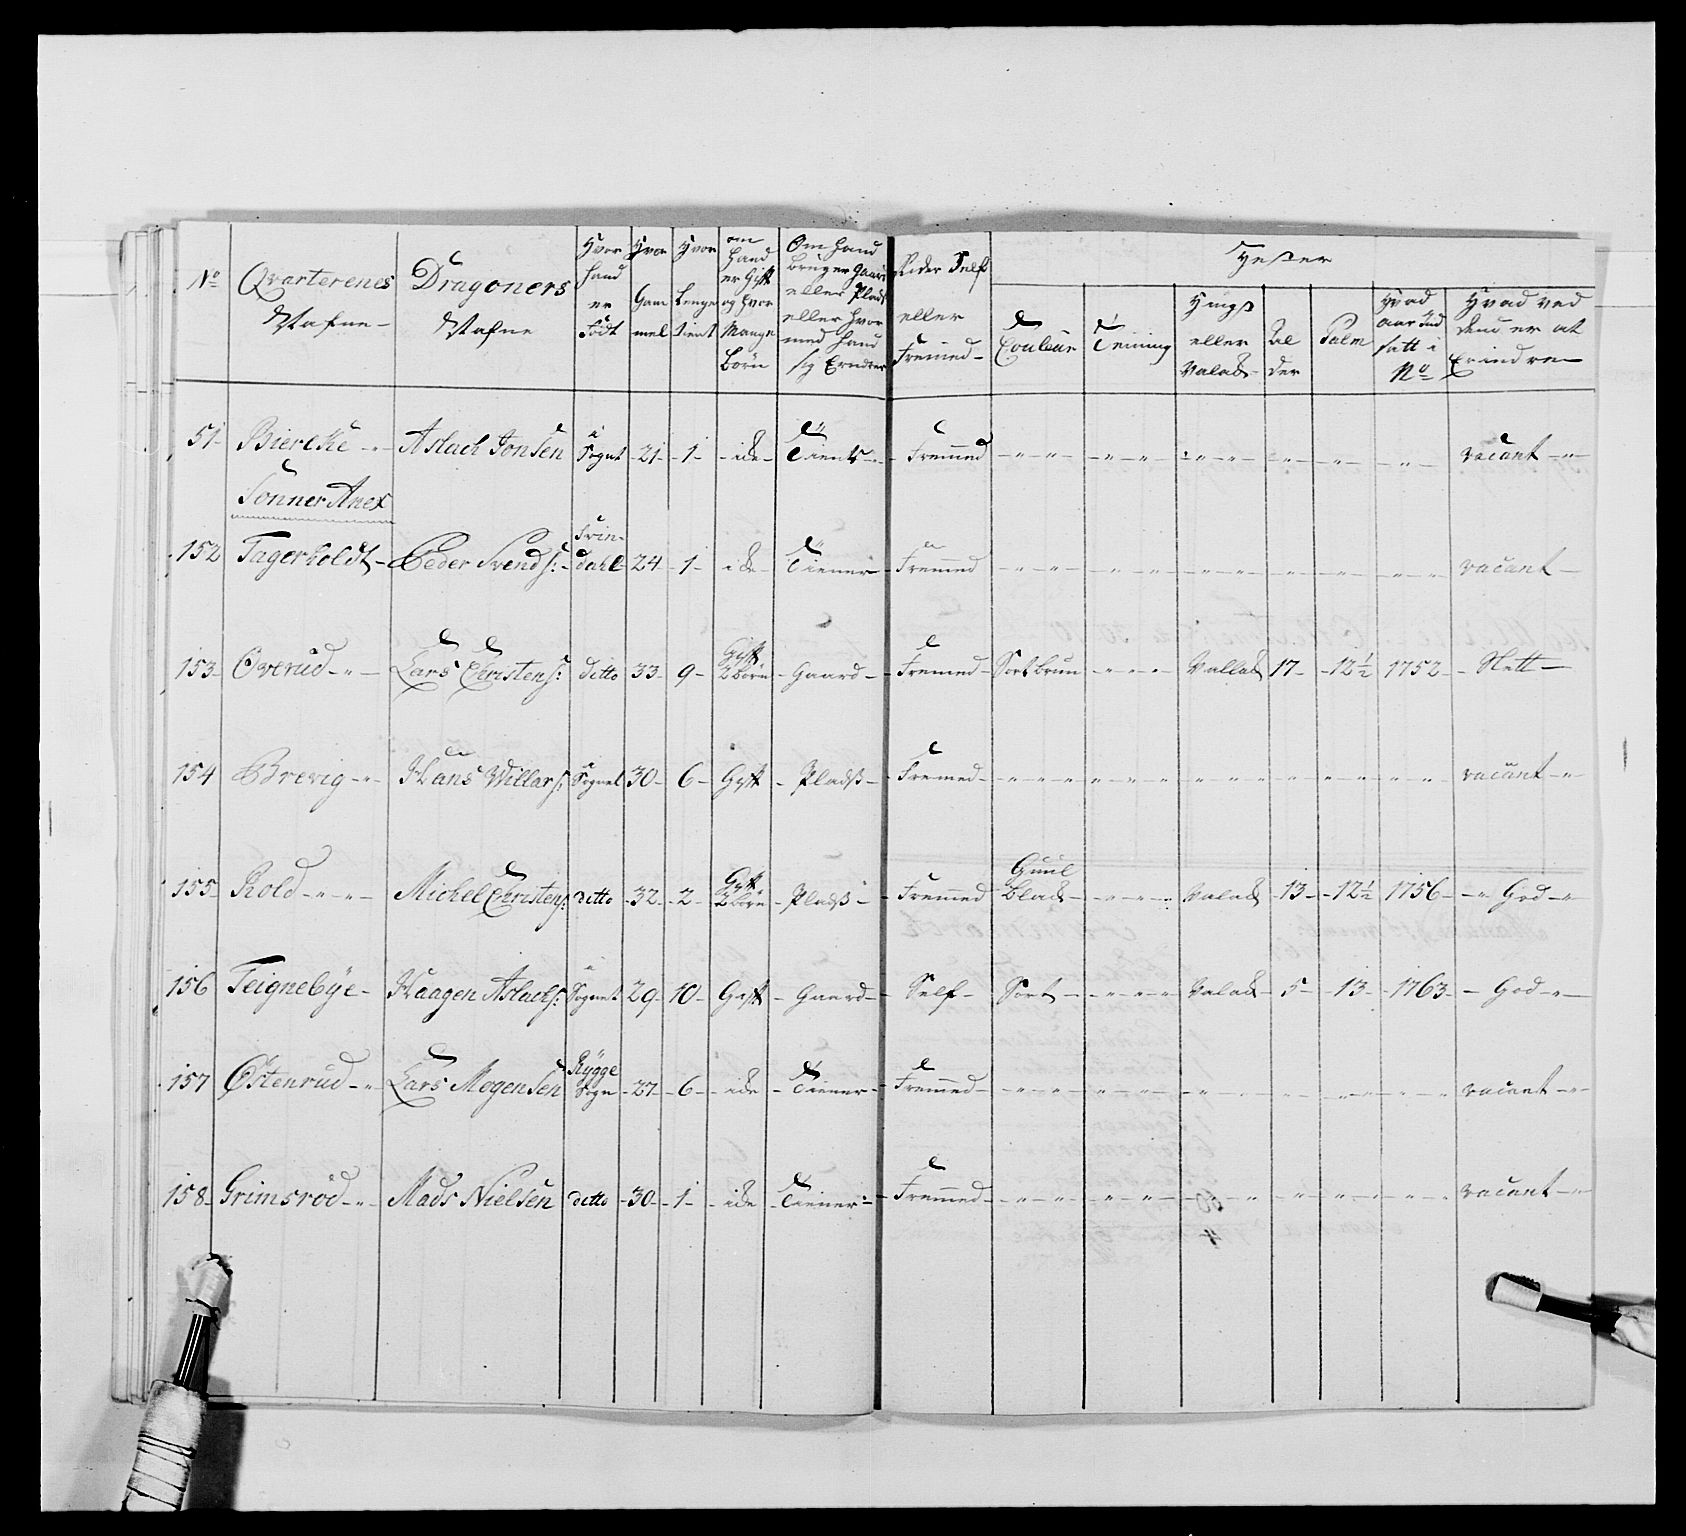 No Qvarterenes Nafne Dragoners Nafne Hvor hand er Född Hvor Gam mel Hvor Lenge tient om hand er Gift og hvor Mange Börn Om hand bruger Gaard eller Plads eller hvor med hand sig Ernærer Rider Self eller Fremed Hester
Couleur Teining Hingst eller Valak Al der Palm Hvad aar Ind satt i No Hvad ved dend er at Erindre
51 Biercke Aslach Jonsen i Sognet 21 1 ide Tient Fremmed vacant
Sonner Anex
152 Fagerholdt Peder Svends: Svin- dahl 24 1 ide Tiener Fremmed vacant
153 Överud Lars Christens: ditto 33 9 Gift 2 börn Gaard Fremed Sortbrun Vallak 17 12½ 1752 Slett
154 Brevig Hans Willars: i Sognet 30 6 Gift Pladss Fremed vacant
155 Rold Michel Christens: ditto 32 2 Gift 2 börn Pladss Fremmed Guul Black Valak 13 12½ 1756 God
156 Teignebÿe Haagen Aslachs: i Sognet 29 10 Gift Gaard Self Sort Valak 5 13 1763 God
157 Østenrud Lars Mogensen Rÿgge Sogn 27 6 ide Tiener Fremmed vacant
158 Grimsröd Mads Nielsen ditto 30 1 ide Tiener Fremmed vacant